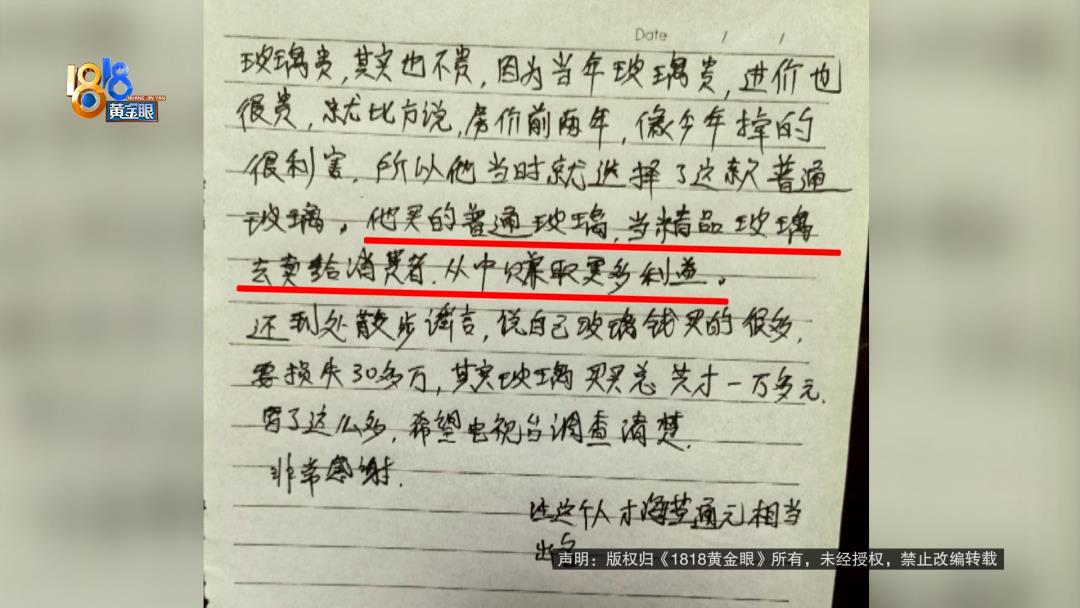 Date / /
1818
HUANG JIN YAN
黄金眼
玻璃贵，其实也不贵，因为当年玻璃贵，进价也
很贵，就比方说，房价前两年，像今年掉的
很利害，所以他当时就选择了这款普通
玻璃。他买的普通玻璃，当精品玻璃
去卖给消费者，从中赚取更多利益。
还到处散步谣言，说自己玻璃钱买的很多，
要损失30多万，其实玻璃买总共才一万多元，
写了这么多，希望电视台调查清楚，
非常感谢.
这个人才海 通元相当
出名
声明：版权归《1818黄金眼》所有，未经授权，禁止改编转载